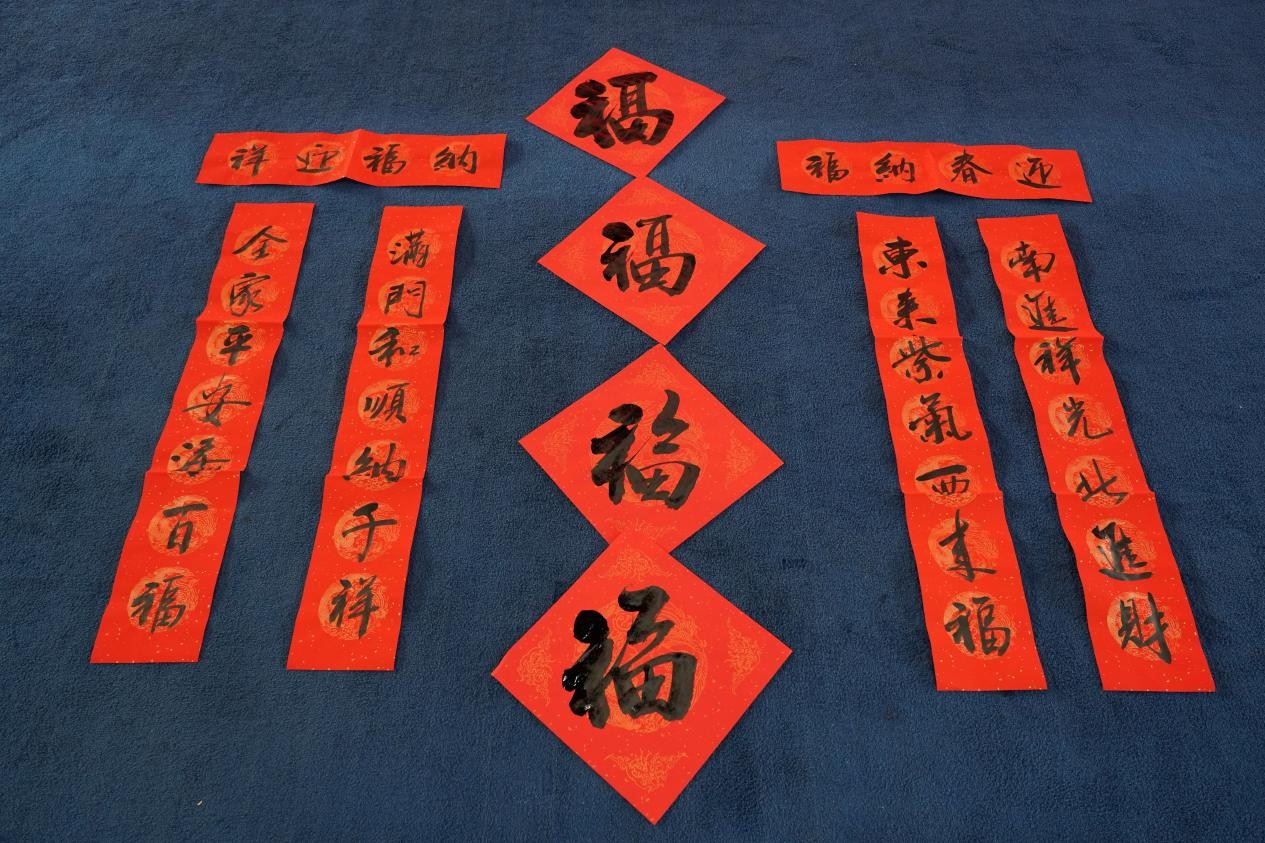 納福迎祥
滿門和順納千祥
全家平安添百福
福
福
福
福
迎春納福
南進祥光北進財
東来紫氣西来福